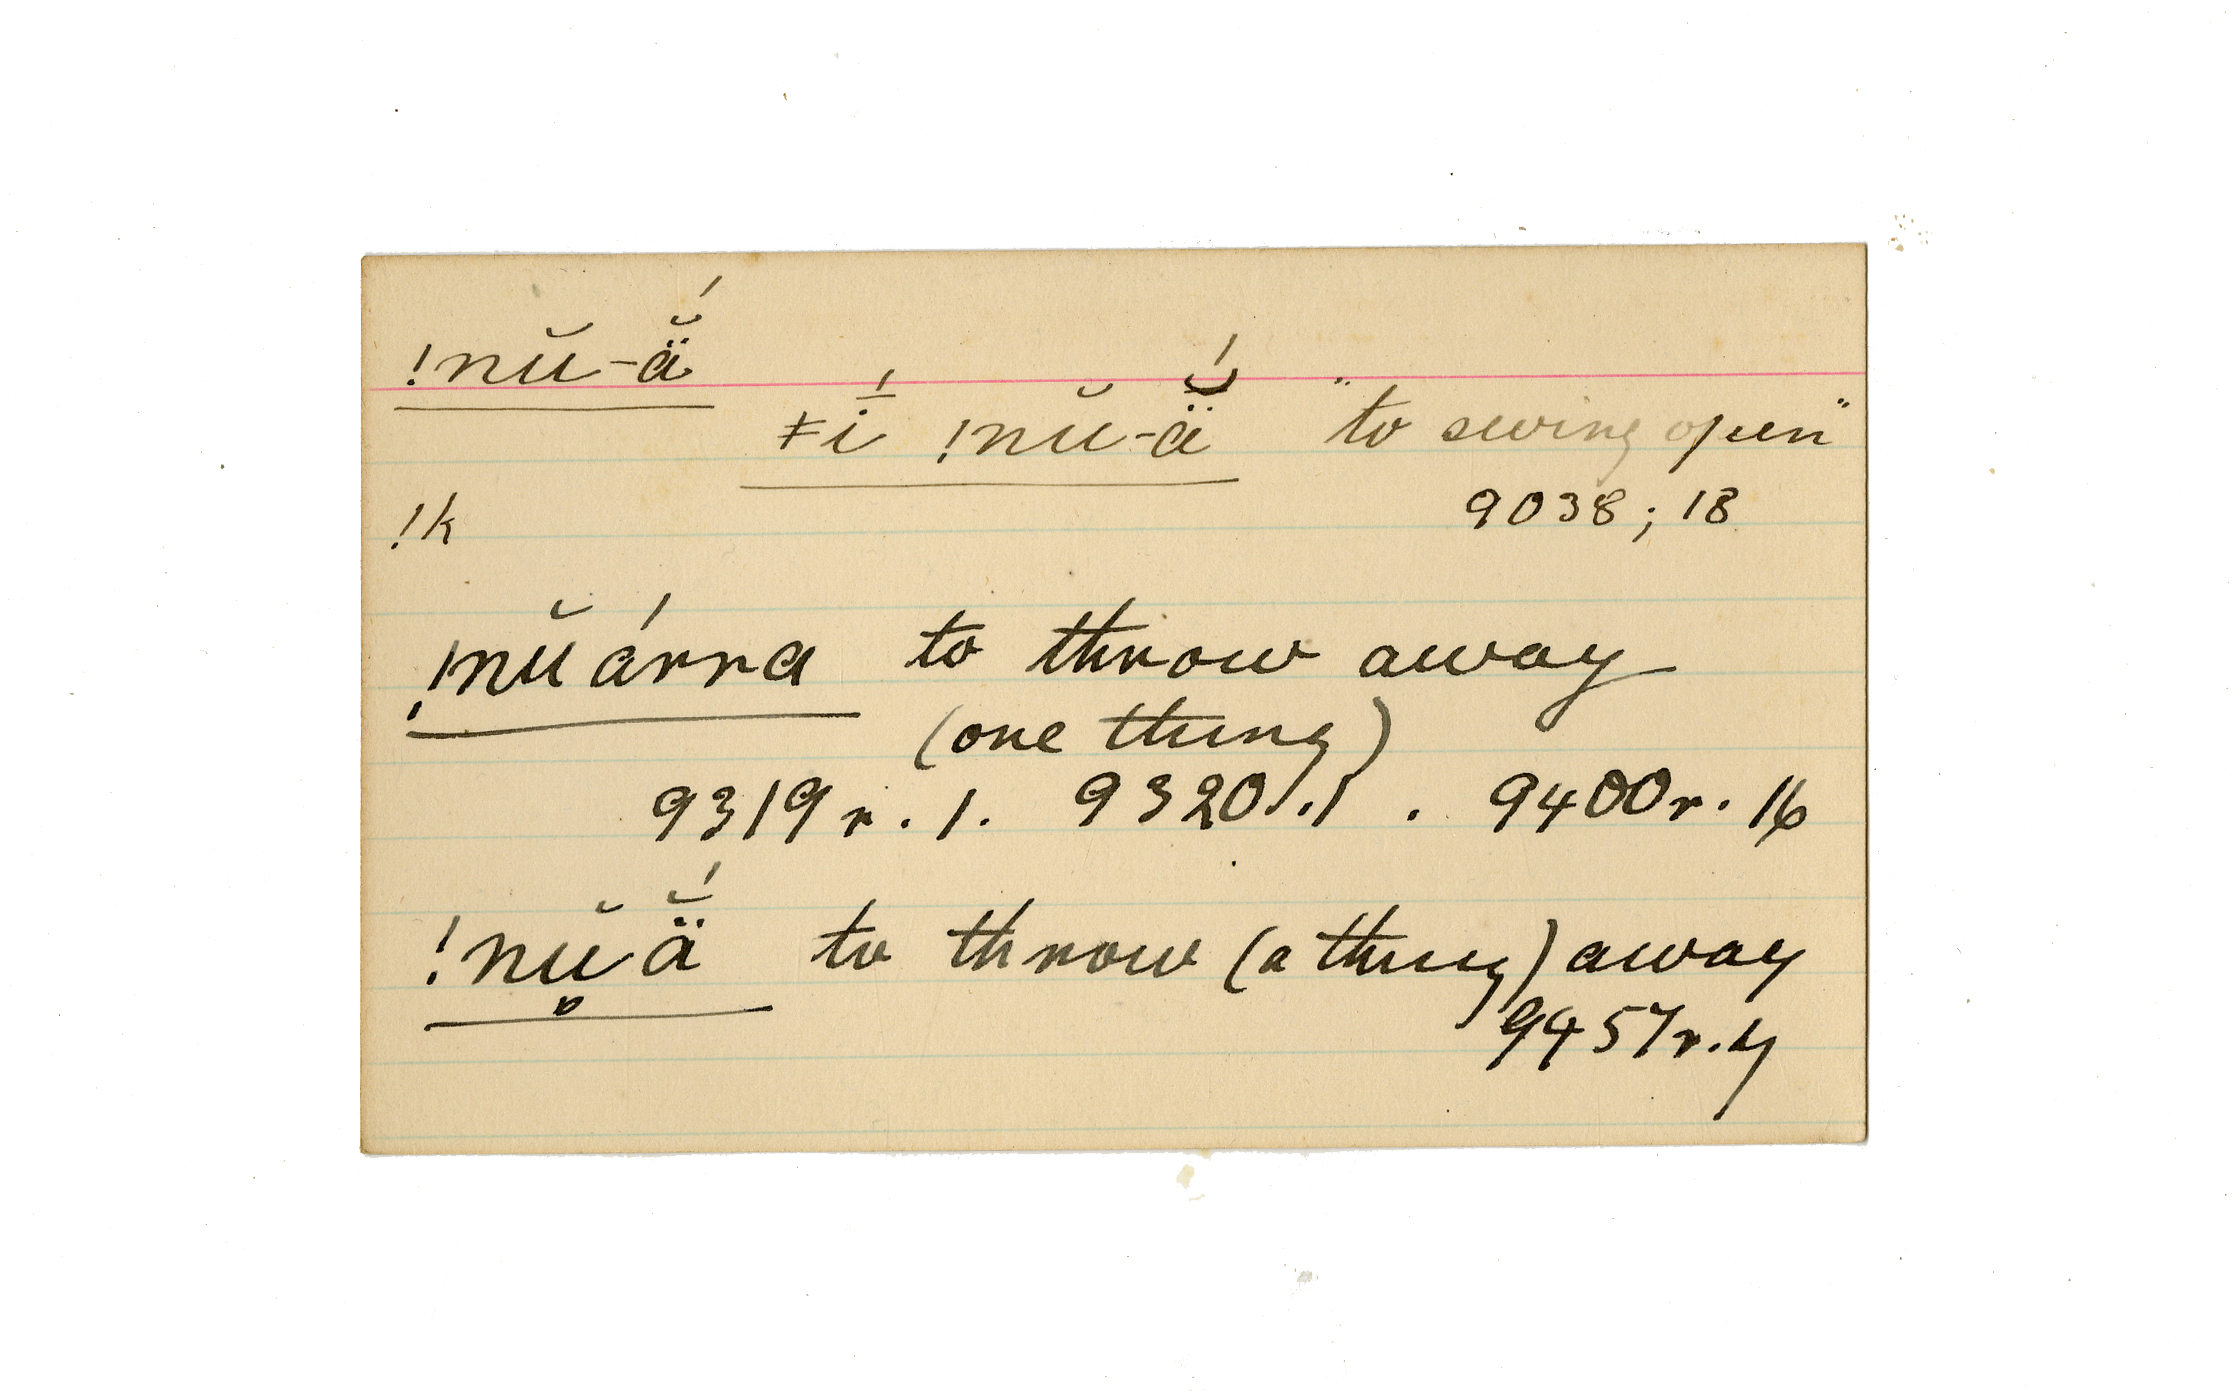 !nŭ-ä̆́
ǂī́ !nŭ-ä̆́ "to swing open"
!k 9038; 18
!nŭárra to throw away
(one thing)
9319 r. 1. 9320 r. 1. 9400 r. 16
!nṷ̆ä̆́ to throw (a thing) away
9457 r. 4